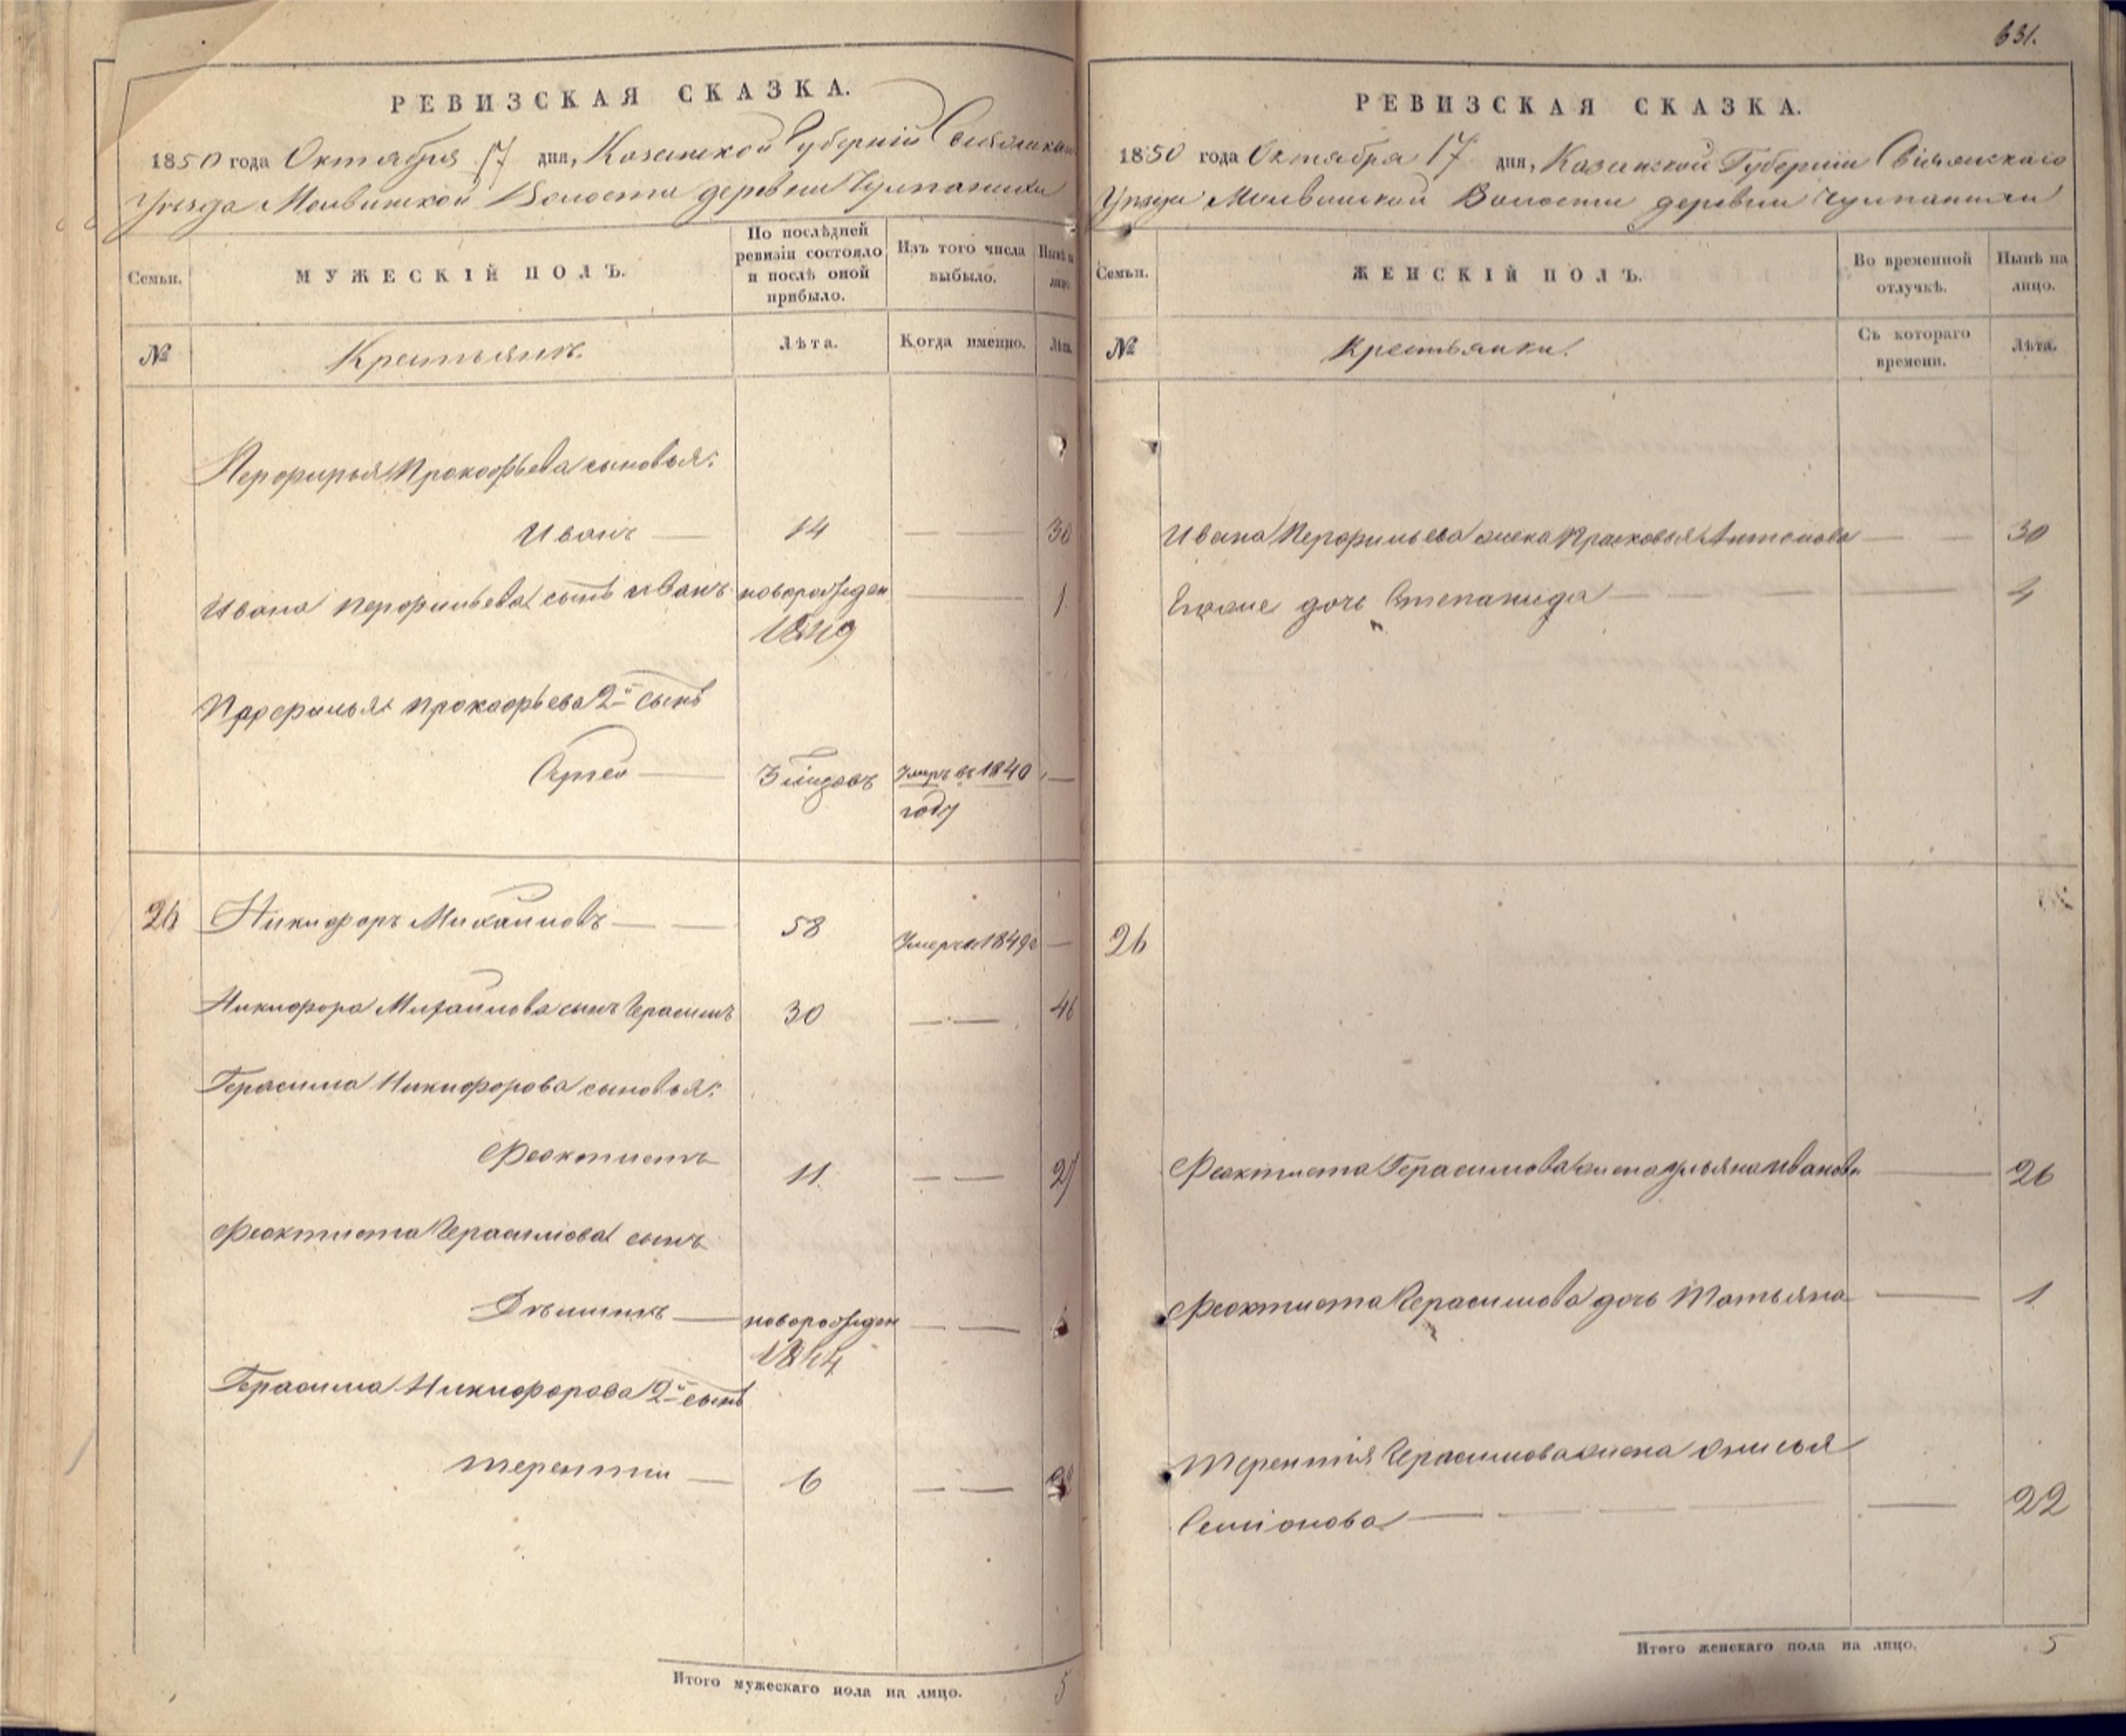 РЕВИЗСКАЯ СКАЗКА.
1850 года Октября 17 дня, Казанской Губерніи
Уезда Молвинской Волости деревни
Семьи.
МУЖЕСКІЙ ПОЛЪ.
По послѣдней ревизіи состояло и послѣ оной прибыло.
Изъ того числа выбыло.
Нынѣ на лицо.
№
Крестьянъ.
Лѣта.
Когда именно.
Лѣта.
Перфирья Прокофьева сыновья:
Иванъ — 14 — — 30
Ивана Перфильева сынъ Иванъ новорожден — 1
1849
Прокофьева 2й сынъ
умръ въ 1840 —
году
26 Никифоръ Михаиловъ — — 58 умеръ 1849 —
Никифора Михаилова сынъ Герасимъ 30 — — 46
Герасима Никифорова сыновья:
Феоктистъ 11 — — 27
Феоктиста Герасимова сынъ
— новорожден — —
1844
Герасима Никифорова 2й сынъ
Терентии — 6 — —
Итого мужескаго пола на лицо. 5
631.
РЕВИЗСКАЯ СКАЗКА.
1850 года Октября 17 дня, Казанской Губерніи Свіяжскаго
Уезда Молвинской Волости деревни
Семьи.
ЖЕНСКІЙ ПОЛЪ.
Во временной отлучкѣ.
Нынѣ на лицо.
№
Крестьянки.
Съ котораго времени.
Лѣта.
Ивана Перфильева жена Прасковья Антонова — — 30
дочь Степанида — — — 4
26
Феоктиста Герасимова жена Ульяна Иванова — 26
Феоктиста Герасимова дочь Татьяна — 1
Терентія Герасимова жена
Семіонова — — — — — 22
Итого женскаго пола на лицо. 5